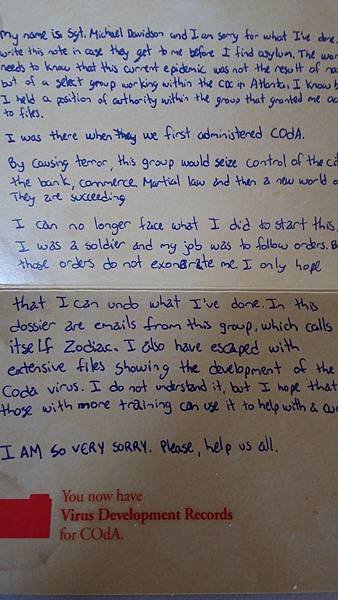 My name is Sgt. Michael Davidson and I am sorry for what I've done.
write this note in case they get to me before I find asylum. The
needs to know that this current epidemic was not the result of
but of a select group working within the CDC in Atlanta. I know
I held a position of authority within the group that granted me
to files.
I was there when they we first administered COdA.
By causing terror, this group would seize control of the
the bank, commerce. Martial law and then a new world
They are succeeding
I can no longer face what I did to start this.
I was a soldier and my job was to follow orders.
those orders do not exonerate me. I only hope
that I can undo what I've done. In this
dossier are emails from this group, which calls
itself Zodiac. I also have escaped with
extensive files showing the development of the
Coda virus. I do not understand it, but I hope that
those with more training can use it to help with a
I AM SO VERY SORRY. Please, help us all.
You now have
Virus Development Records
for COdA.